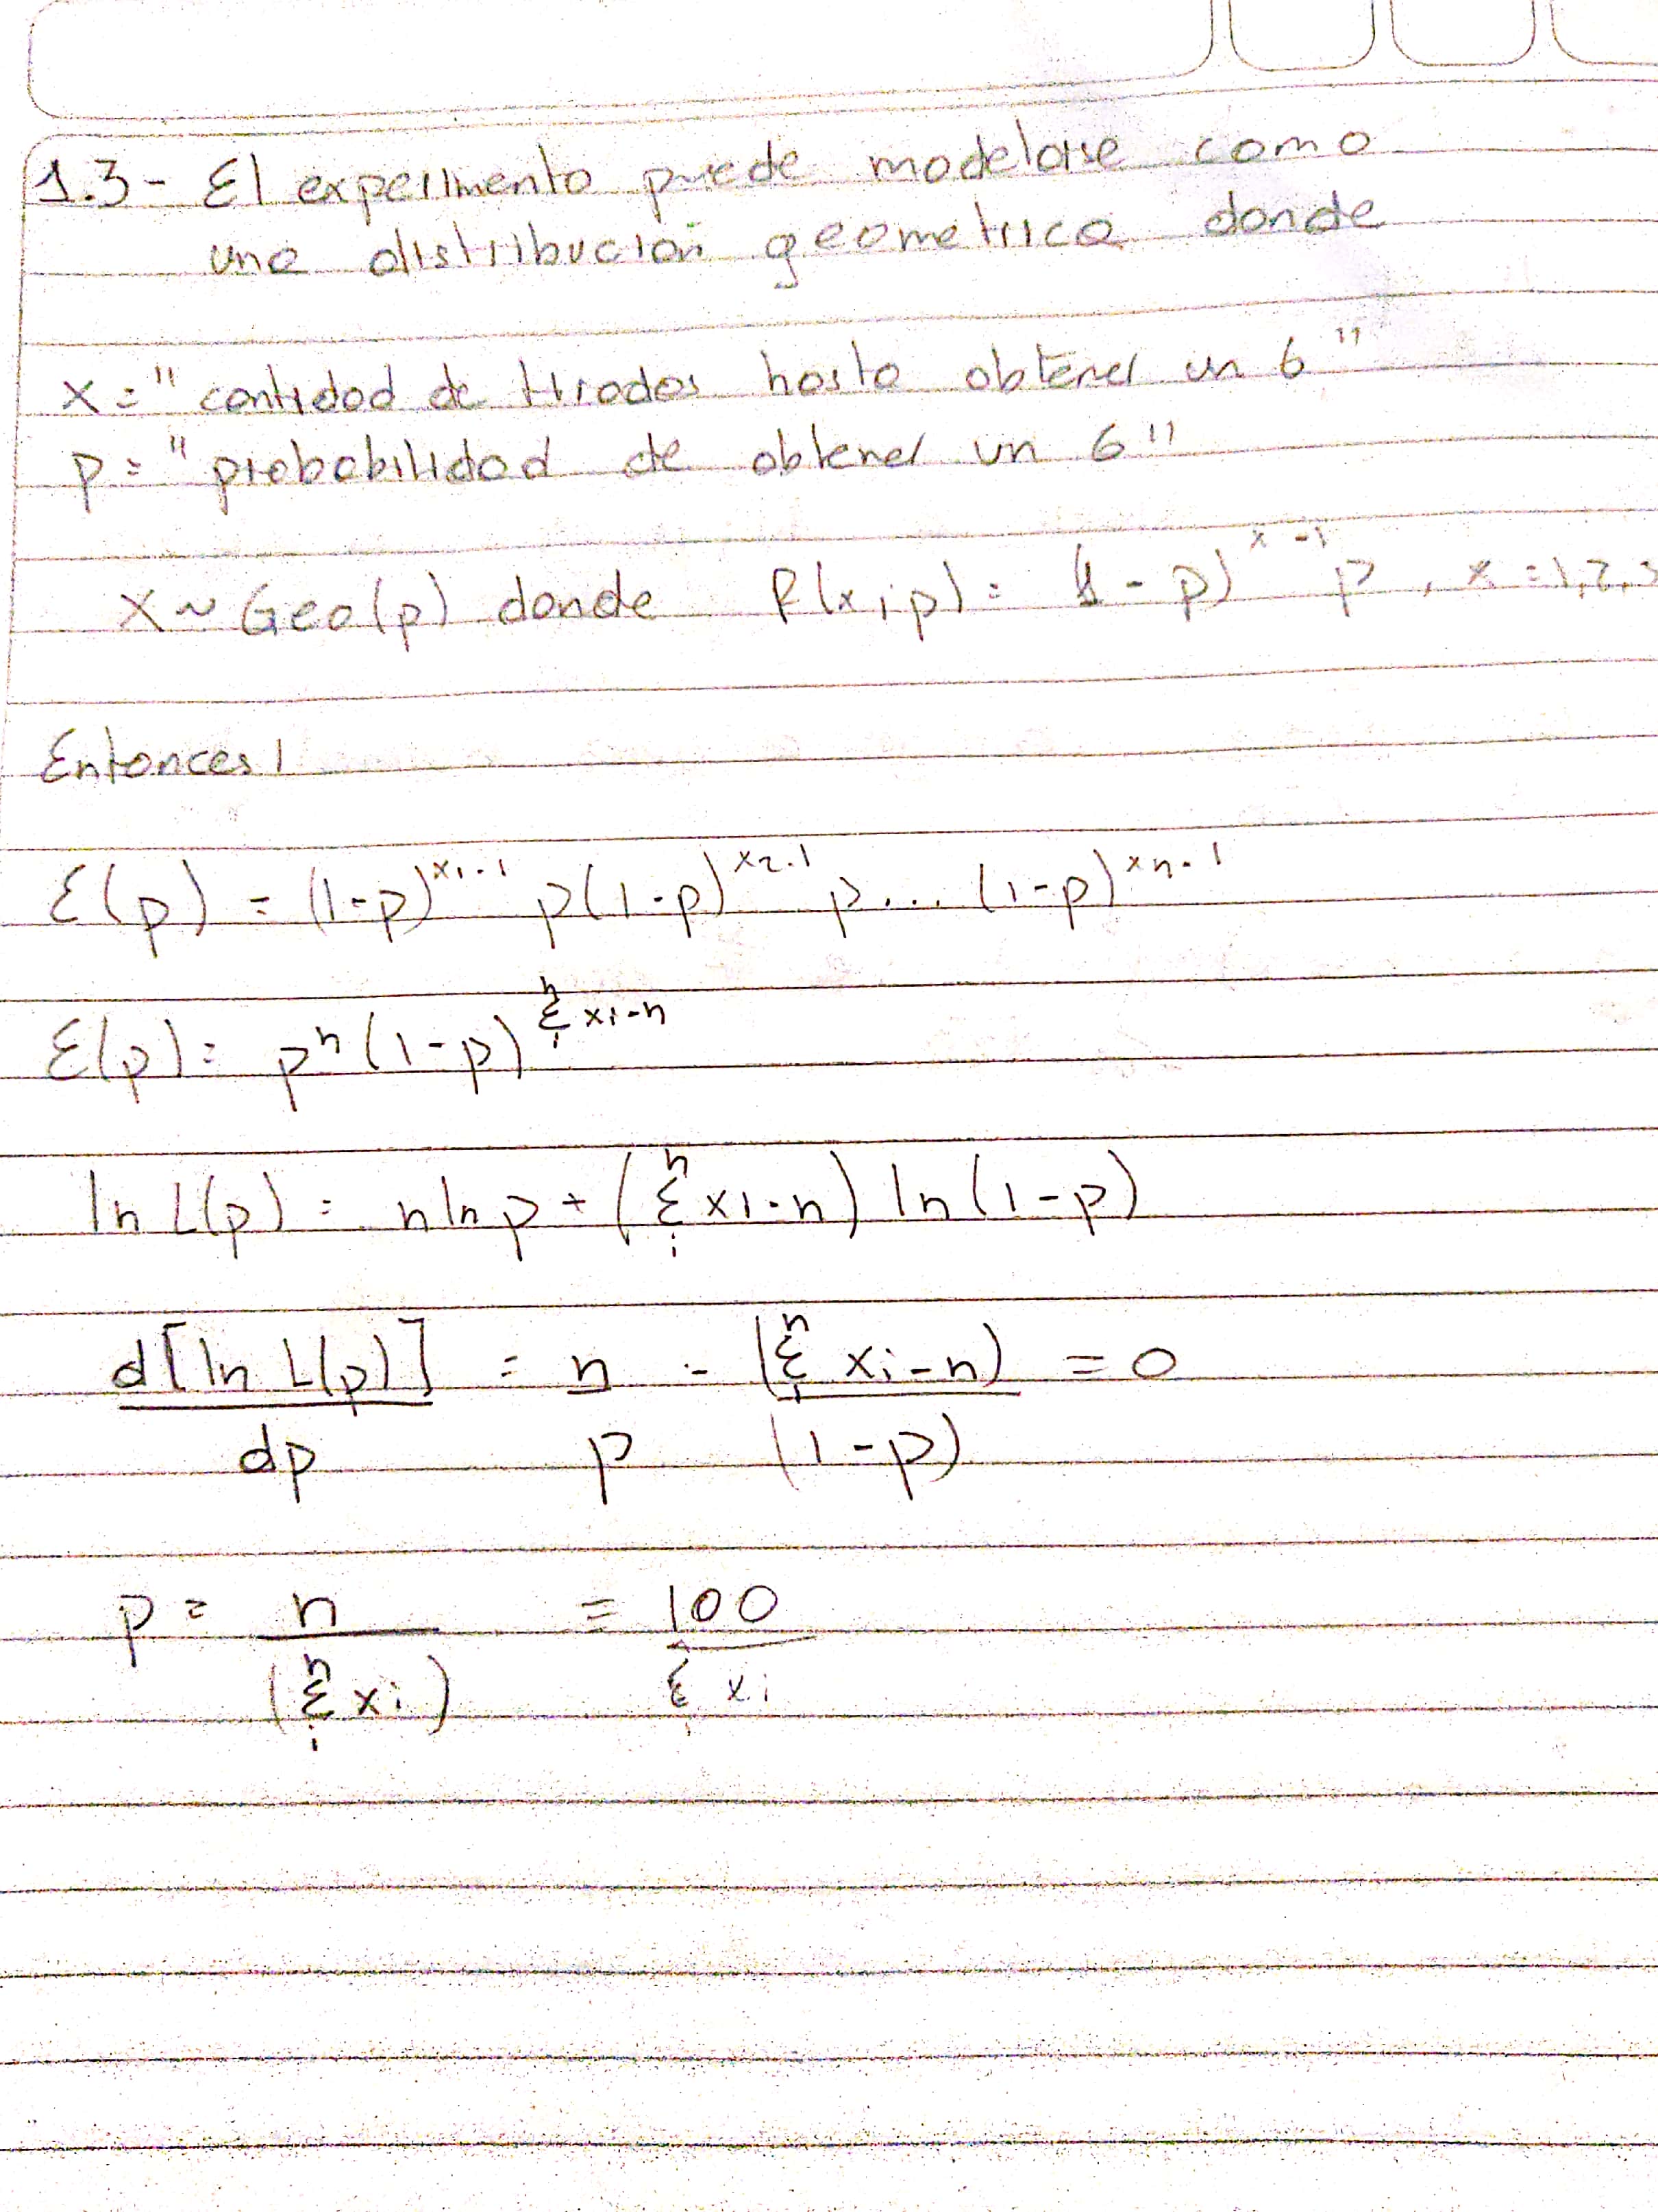 1.3- El experimento puede modelarse como
una distribución geometrica donde
x = "cantidad de tiradas hasta obtener un 6"
p = "probabilidad de obtener un 6"
X ~ Geo(p) donde f(x;p) = (1-p)^{x-1} p, x = 1,2,3
Entonces
L(p) = (1-p)^{x1-1} p(1-p)^{x2-1} p... (1-p)^{xn-1}
L(p) = p^n (1-p)^{Σ_i^n xi-n}
ln L(p) = n ln p + (Σ_i^n xi-n) ln (1-p)
d[ln L(p)] = n - (Σ_i^n xi-n) = 0
dp p (1-p)
p = n = 100
(Σ_i^n xi) Σ_i xi